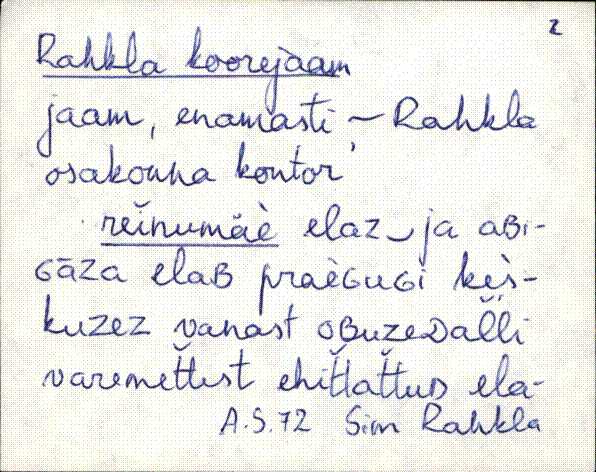 2
Rahkla koorejaam
jaam, enamasti ~ Rahkla
osakonna kontor
reĭnumäè elaz‿ja aʙi-
ɢāza elaʙ praèɢuɢi kès-
kuzez vanast oʙuzeᴅal̆l̆i
varemet̆t̆est ehit̆t̆at̆t̆uᴅ ela-
A.S.72 Sim Rahkla